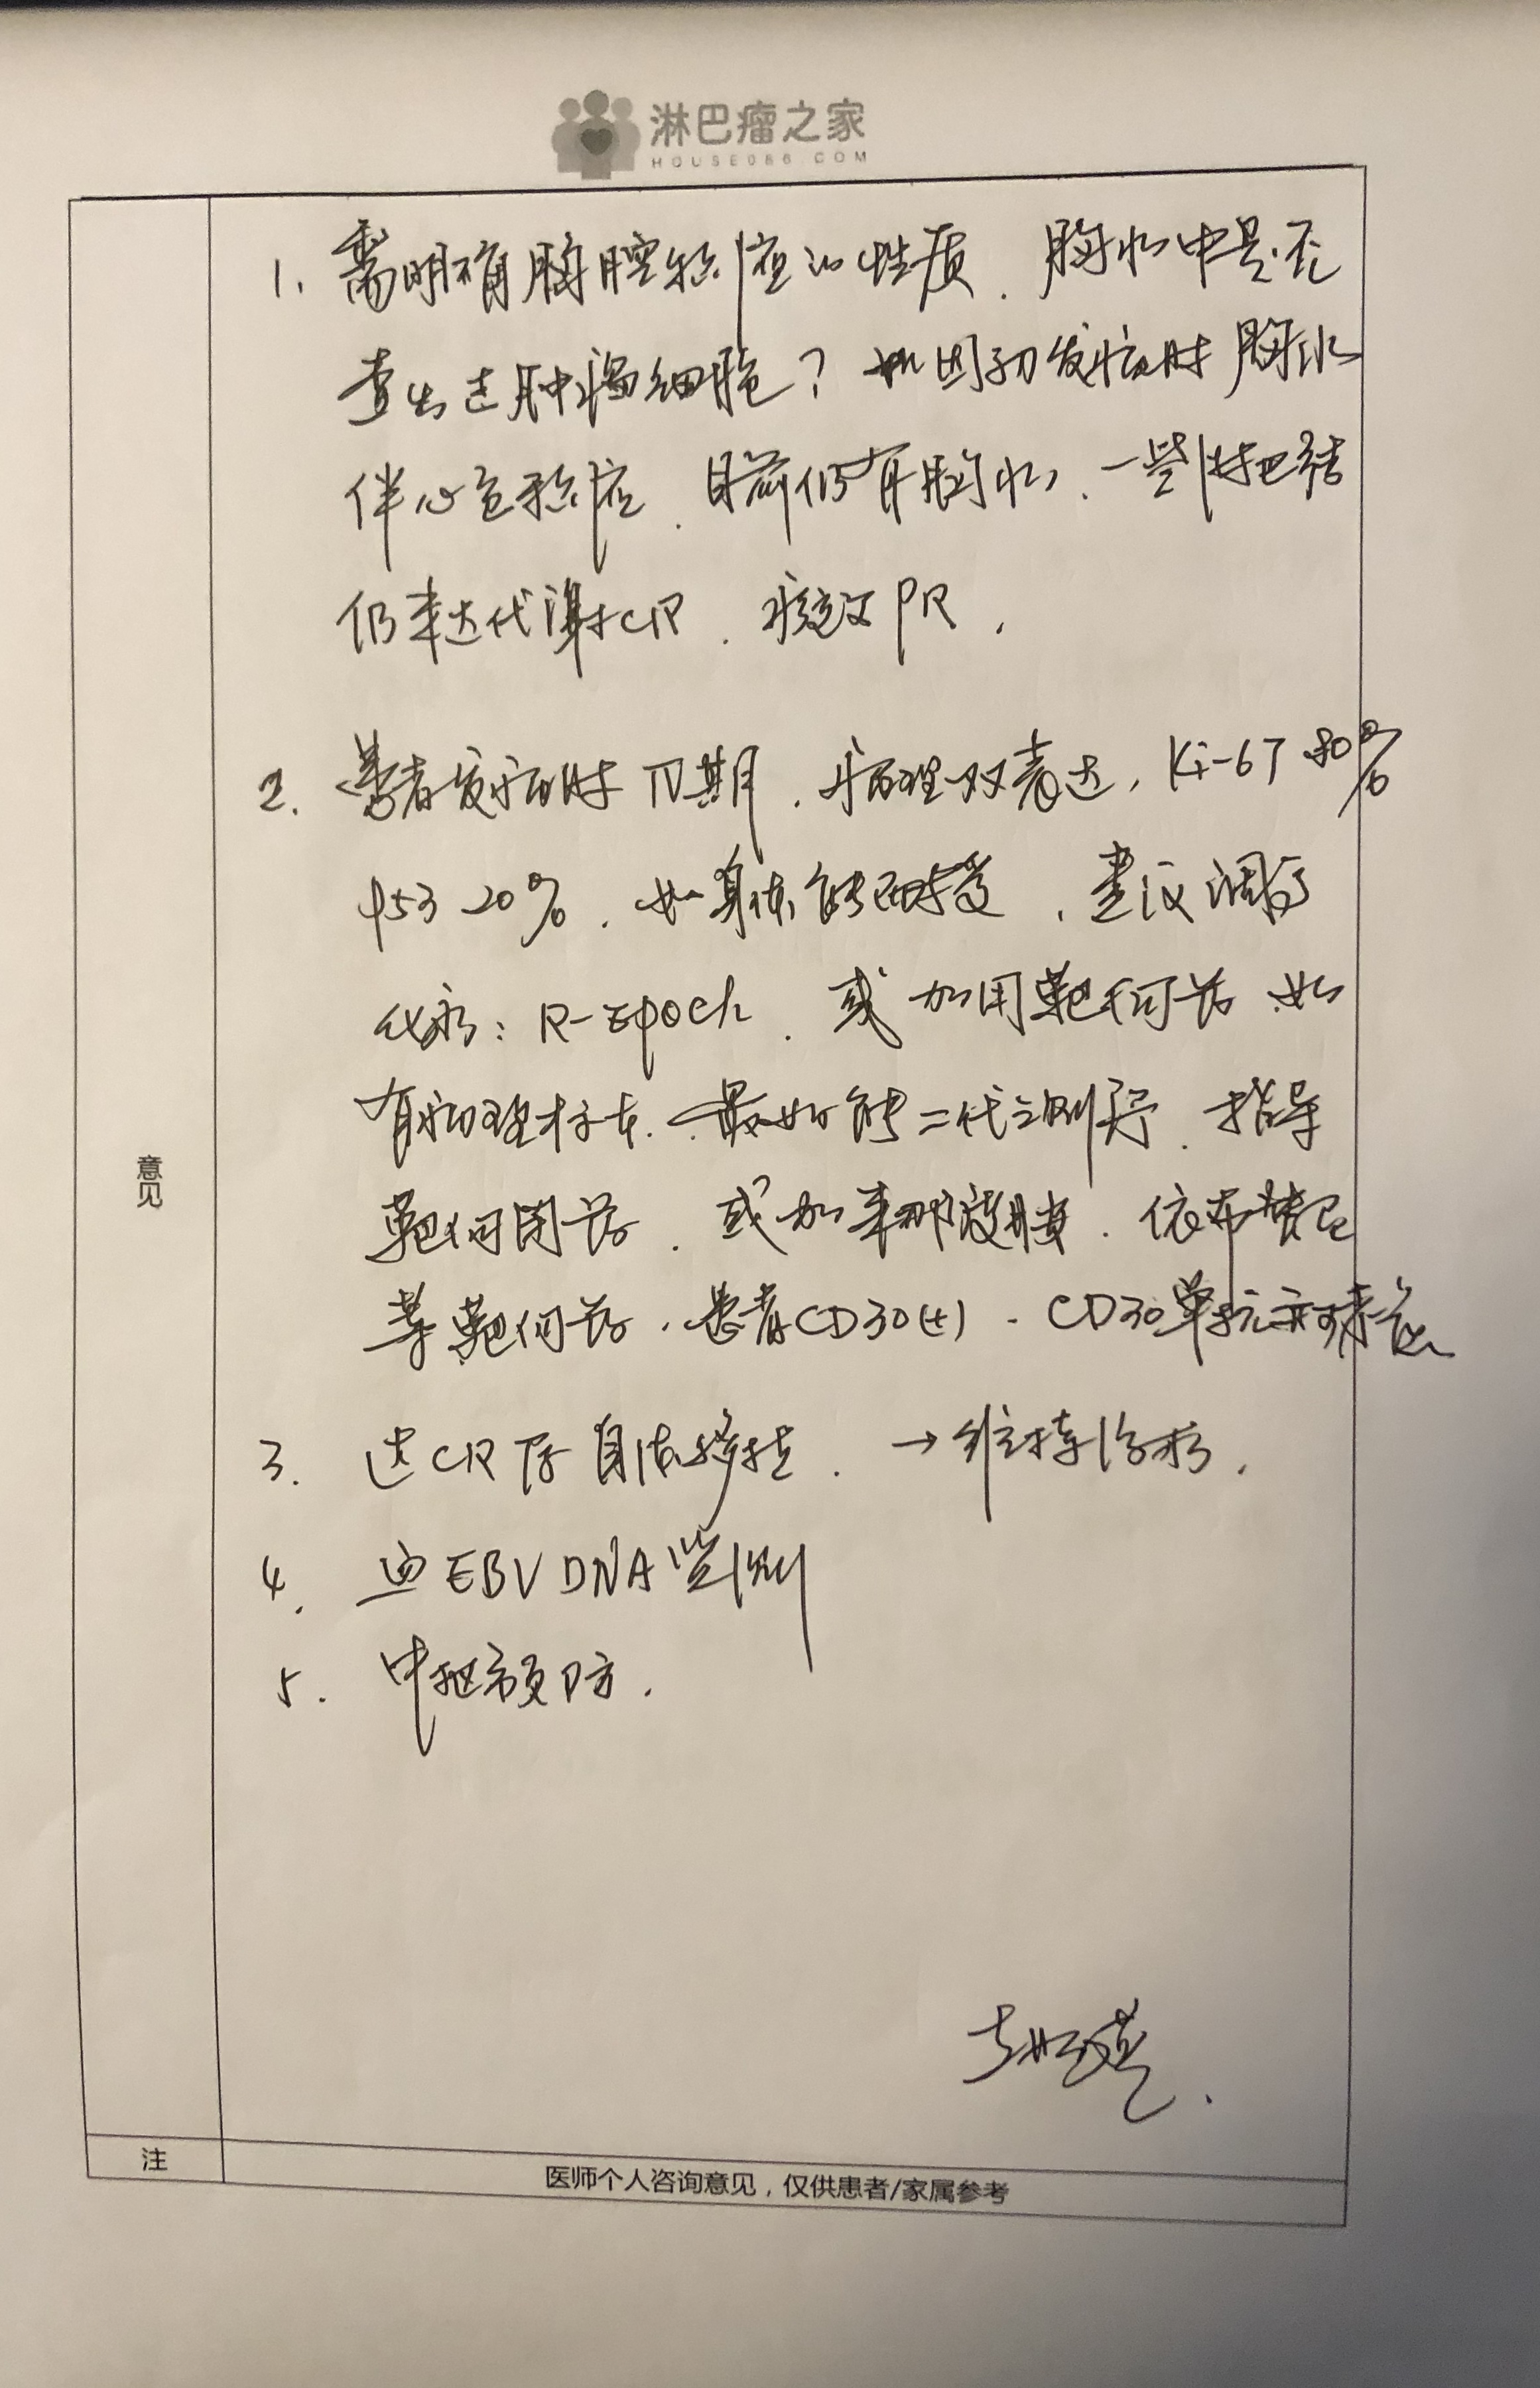 淋巴瘤之家
HOUSE086.COM
1. 需明确胸腔积液的性质. 胸水中是否
查出过肿瘤细胞? 因初发病时胸水
伴心包积液. 目前仍有胸水、一些淋巴结
仍未达代谢CR. 疗效PR.
2. 患者发病时IV期. 病理双表达, Ki-67 80%
P53 20%. 如身体能耐受, 建议调整
: R-EPOCH. 或加用靶向药. 如
有病理标本. 最好能二代测序. 指导
靶向用药. 或加来那度胺. 依布替尼
等靶向药. 患者CD30(+). CD30单抗亦可考虑
3. 达CR后自体移植. → 维持治疗.
4. 血EBV DNA监测
5. 中枢预防.
意见
注
医师个人咨询意见，仅供患者/家属参考